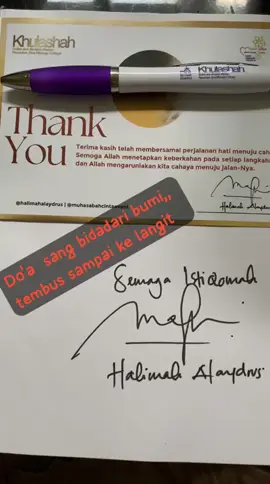 Khulashah
Khulashah
Thank
You
Terima kasih telah membersamai perjalanan hati menuju cah
Semoga Allah menetapkan keberkahan pada setiap langkah
dan Allah mengaruniakan kita cahaya menuju Jalan-Nya.
@halimahalaydrus | @muhasabahcinta
Halimah Alaydrus
Do'a sang bidadari bumi,,
tembus sampai ke langit
Semoga Istiqomah
Halimah Alaydrus